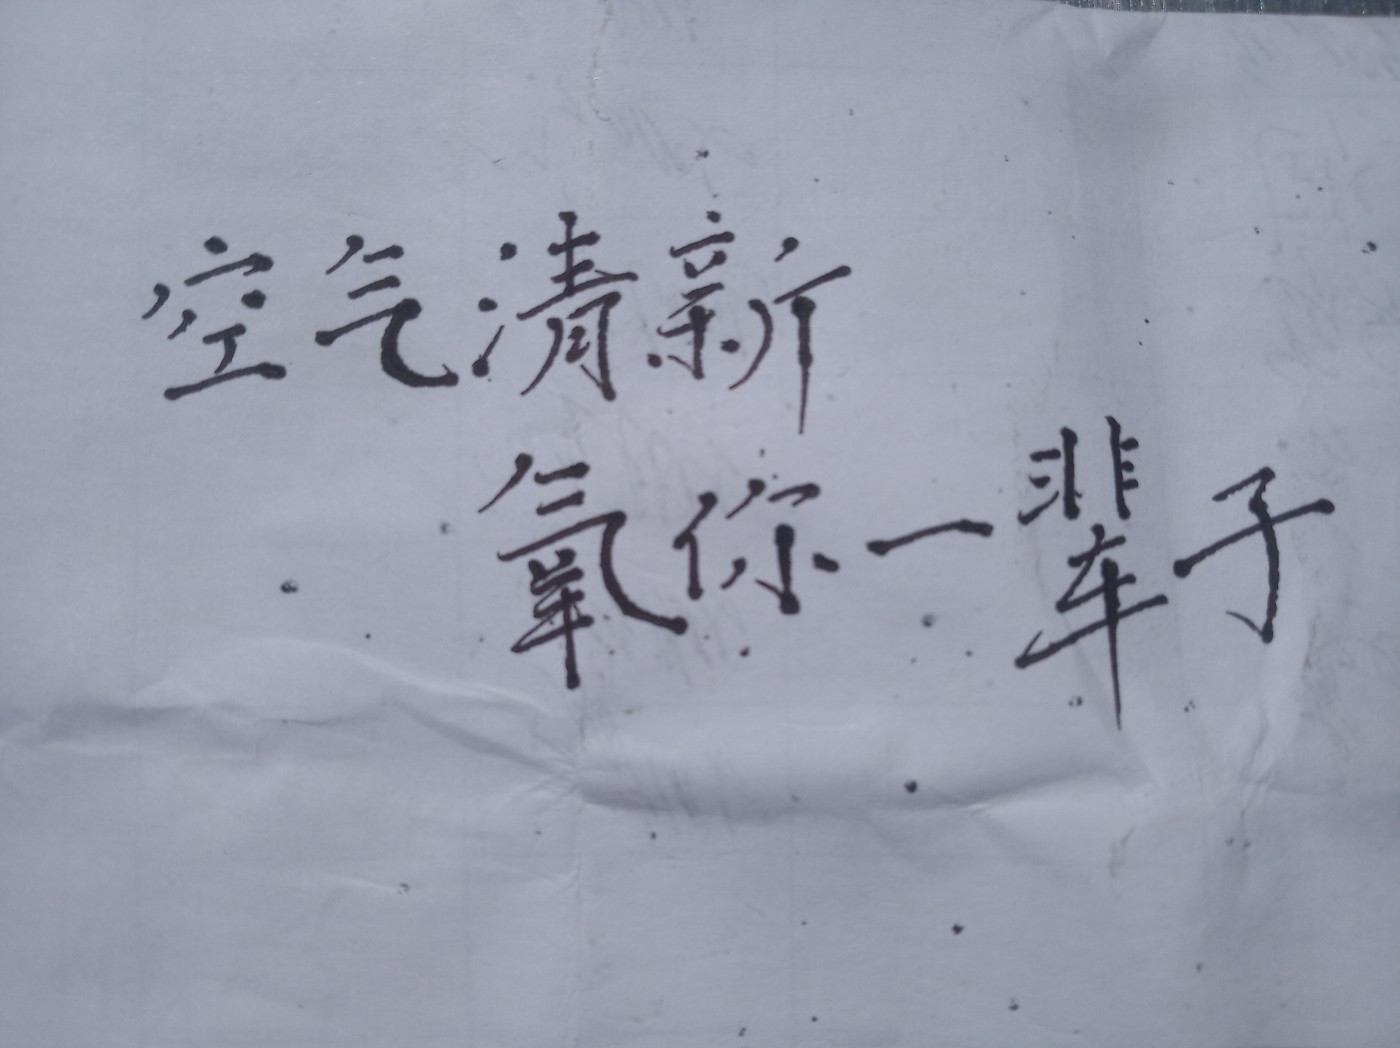 空气清新
氧你一辈子